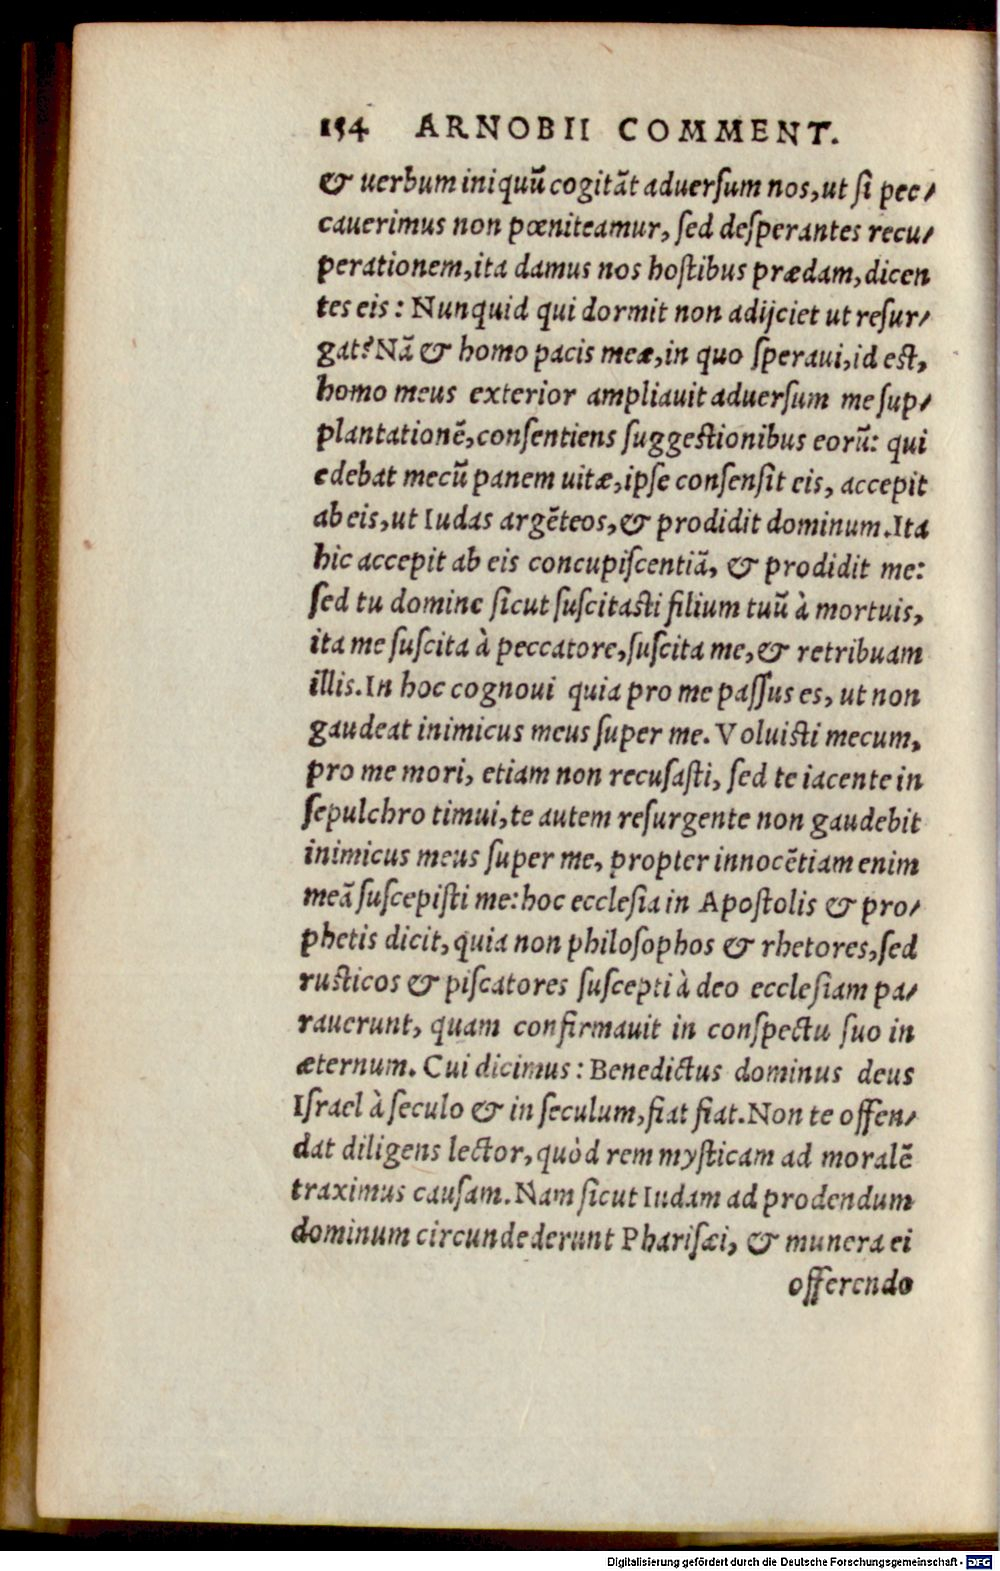 154 ARNOBII COMMENT.
& uerbum iniquū cogitāt aduersum nos, ut si pec-
cauerimus non pœniteamur, sed desperantes recu-
perationem, ita damus nos hostibus prædam, dicen
tes eis: Nunquid qui dormit non adijciet ut resur-
gat? Nā & homo pacis meæ, in quo speraui, id est,
homo meus exterior ampliauit aduersum me sup-
plantationē, consentiens suggestionibus eorū: qui
edebat mecū panem uitæ, ipse consensit eis, accepit
ab eis, ut Iudas argēteos, & prodidit dominum. Ita
hic accepit ab eis concupiscentiā, & prodidit me:
sed tu domine sicut suscitasti filium tuū à mortuis,
ita me suscita à peccatore, suscita me, & retribuam
illis. In hoc cognoui quia pro me passus es, ut non
gaudeat inimicus meus super me. Voluisti mecum,
pro me mori, etiam non recusasti, sed te iacente in
sepulchro timui, te autem resurgente non gaudebit
inimicus meus super me, propter innocētiam enim
meā suscepisti me: hoc ecclesia in Apostolis & pro-
phetis dicit, quia non philosophos & rhetores, sed
rusticos & piscatores suscepti à deo ecclesiam pa-
rauerunt, quam confirmauit in conspectu suo in
æternum. Cui dicimus: Benedictus dominus deus
Israel à seculo & in seculum, fiat fiat. Non te offen-
dat diligens lector, quòd rem mysticam ad moralē
traximus causam. Nam sicut Iudam ad prodendum
dominum circundederunt Pharisæi, & munera ei
offerendo
Digitalisierung gefördert durch die Deutsche Forschungsgemeinschaft - DFG